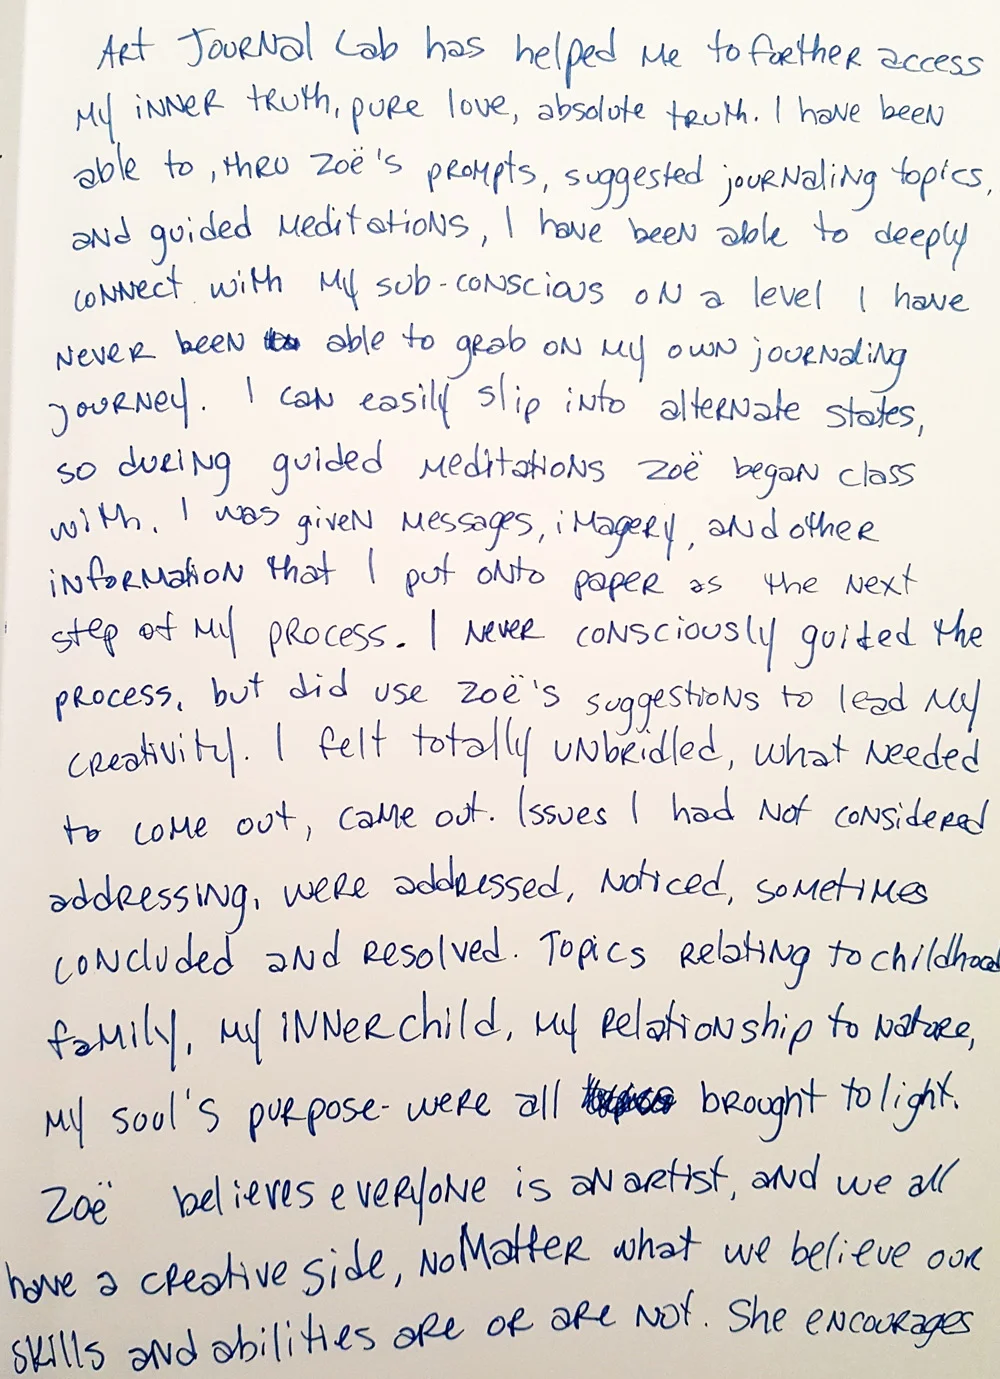 Art Journal Lab has helped me to further access
my inner truth, pure love, absolute truth. I have been
able to, thru Zoë's prompts, suggested journaling topics,
and guided meditations, I have been able to deeply
connect with my sub-conscious on a level I have
never been able to grab on my own journaling
journey. I can easily slip into alternate states,
so during guided meditations Zoë began class
with, I was given messages, imagery, and other
information that I put onto paper as the next
step of my process. I never consciously guided the
process, but did use Zoë's suggestions to lead my
creativity. I felt totally unbridled, what needed
to come out, came out. Issues I had not considered
addressing, were addressed, noticed, sometimes
concluded and resolved. Topics relating to childhood
family, my inner child, my relationship to nature,
my soul's purpose- were all brought to light.
Zoë believes everyone is an artist, and we all
have a creative side, no matter what we believe our
skills and abilities are or are not. She encourages